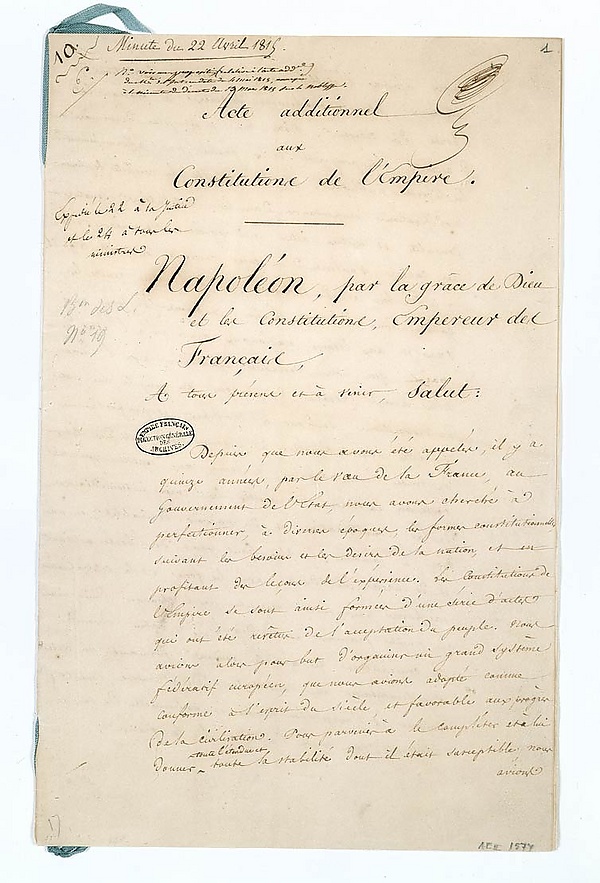 10.
Minute du 22 Avril 1815.
1
Acte additionnel
aux
Constitutions de l'Empire.
Expédié le 22 à la
et le 24 à tous les
ministres
Napoléon, par la grâce de Dieu
et les Constitutions, Empereur des
Français,
A tous présens et à venir, Salut:
EMPIRE FRANÇAIS
DIRECTION GÉNÉRALE
DES
ARCHIVES
Depuis que nous avons été appelés, il y a
quinze années, par le vœu de la France, au
Gouvernement de l'Etat, nous avons cherché à
perfectionner, à diverses époques les formes constitutionnelles
suivant les besoins et les desirs de la nation, et en
profitant des leçons de l'expérience. Les Constitutions de
l'Empire se sont ainsi formées d'une série d'actes
qui ont été revêtus de l'acceptation du peuple. Nous
avions alors pour but d'organiser un grand système
fédératif européen, que nous avions adopté comme
conforme à l'esprit du siècle et favorable aux progrès
de la civilisation. Pour parvenir à le compléter et à lui
toute l'étendue et
donner toute la stabilité dont il était susceptible, nous
avions
AE II 1577